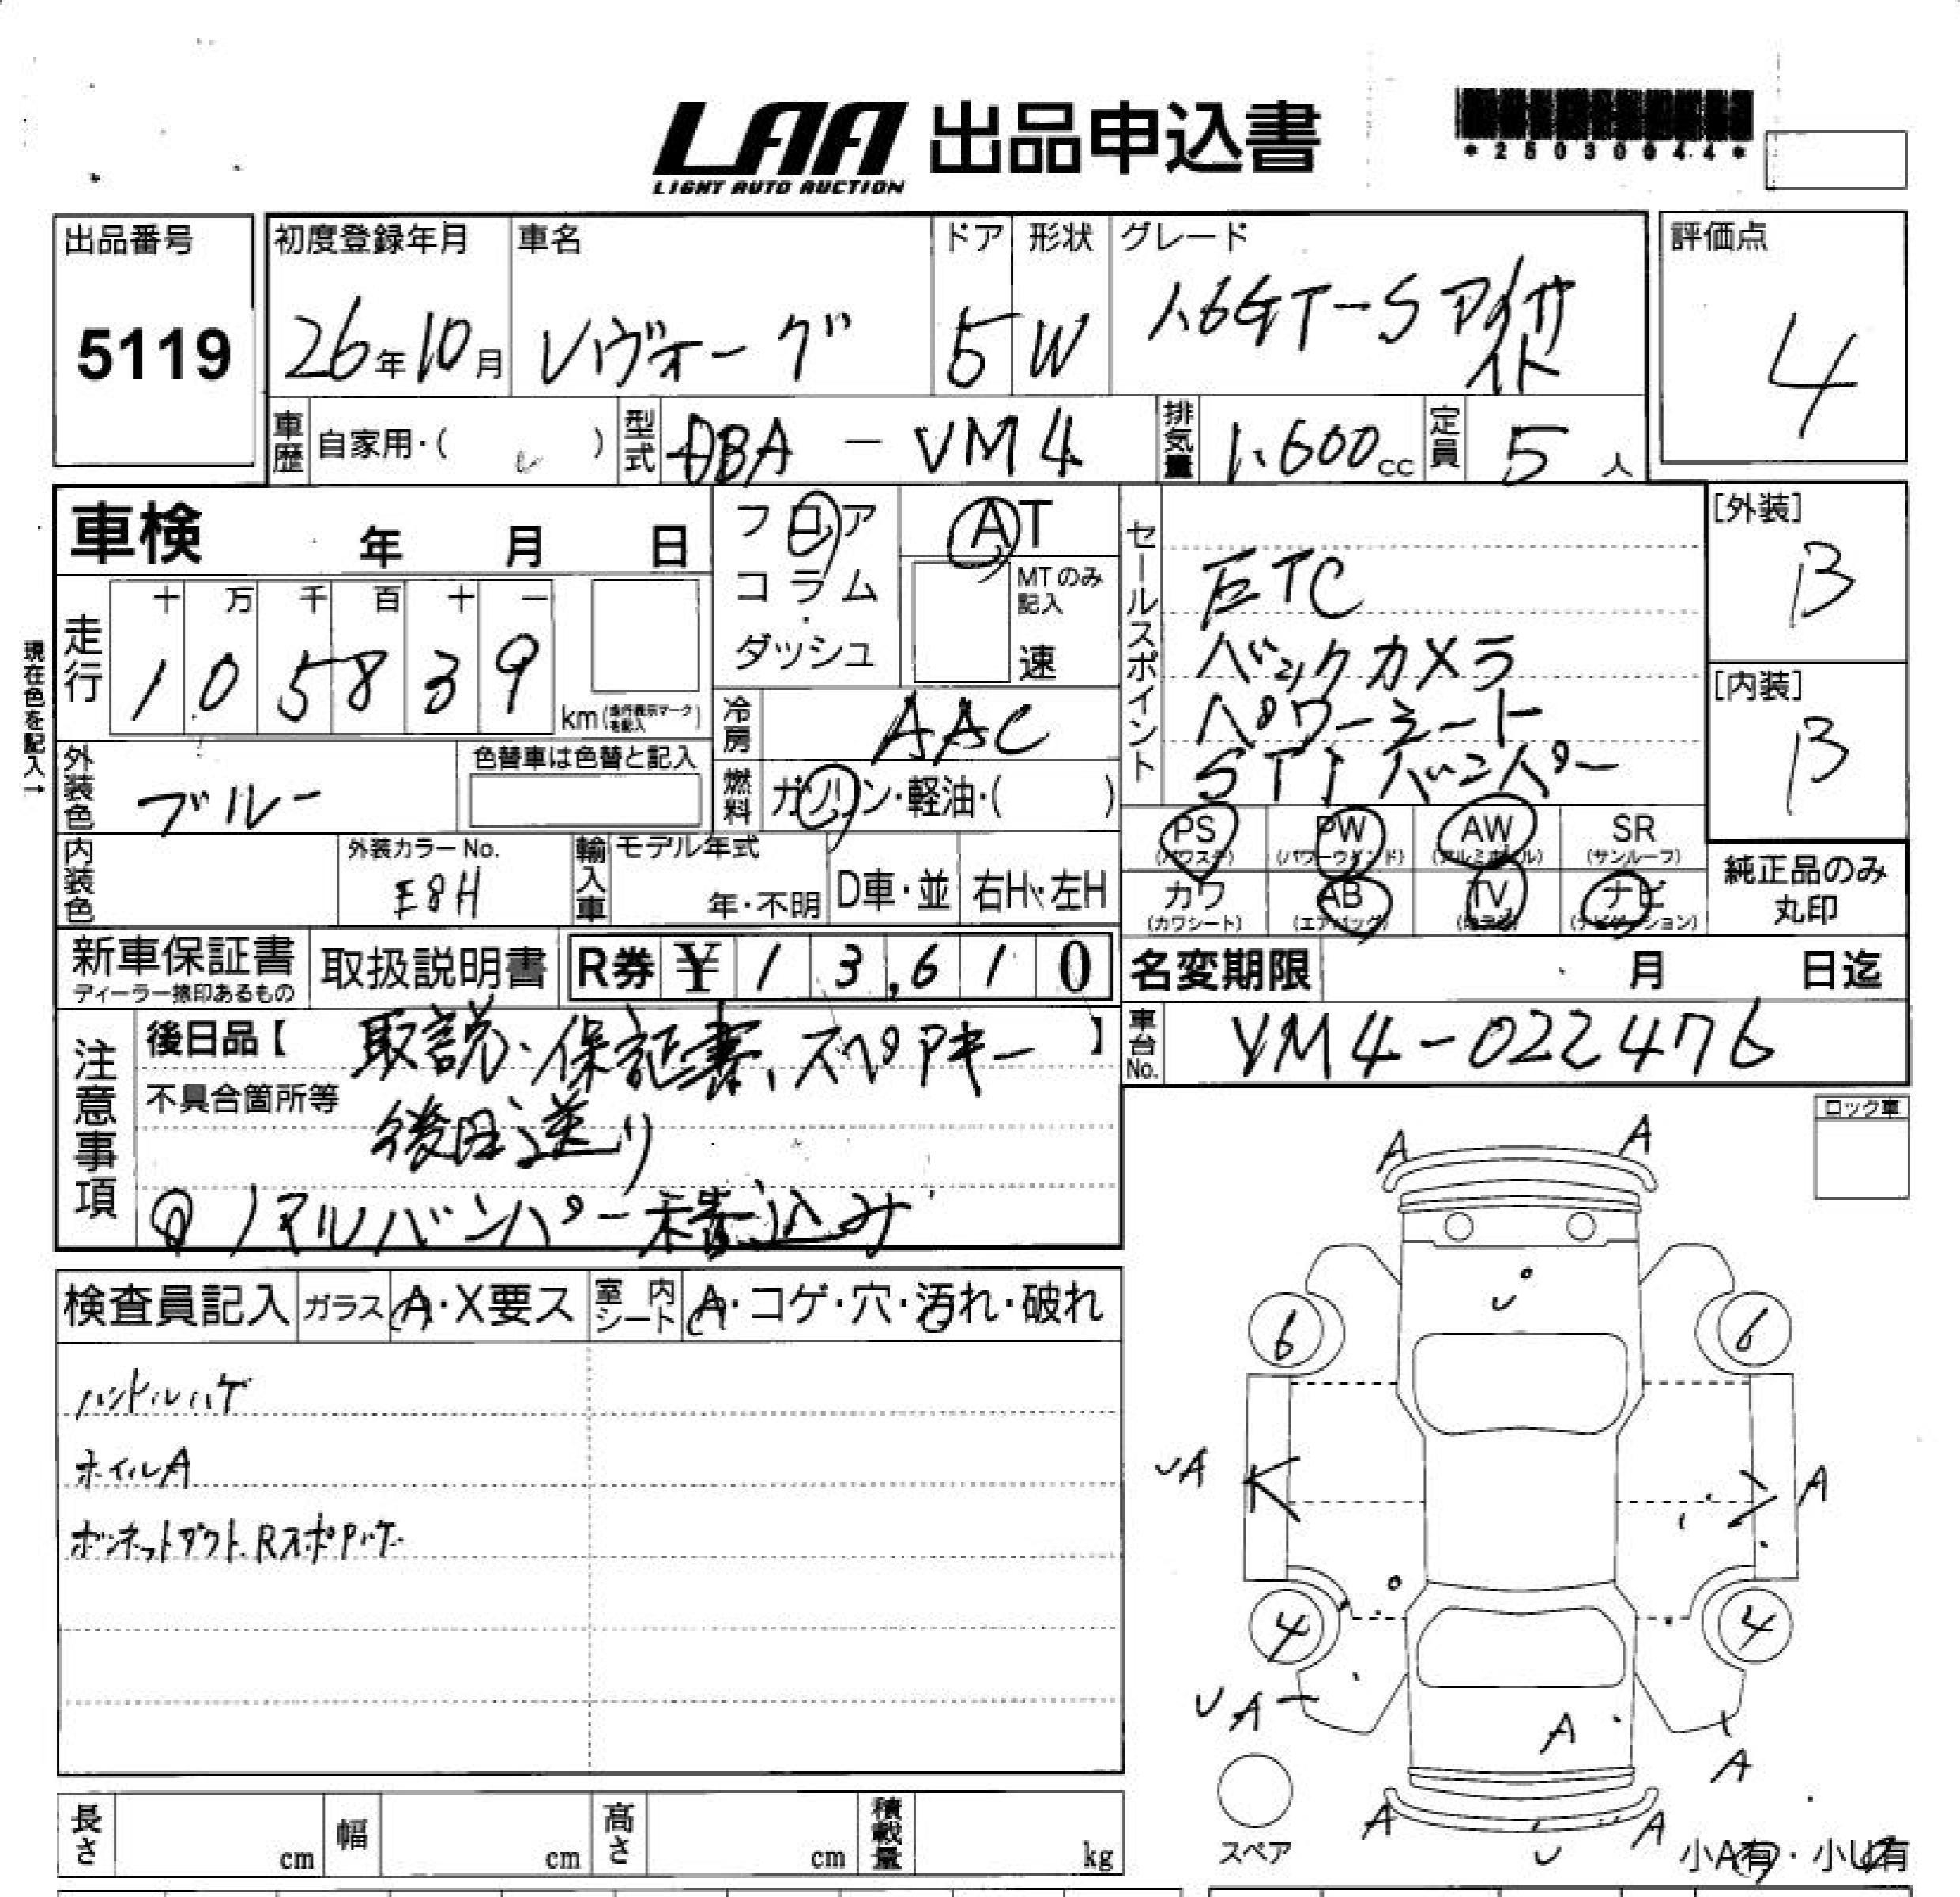 LAA 出品申込書
LIGHT AUTO AUCTION
*25030044*
出品番号
5119
初度登録年月 車名 ドア 形状 グレード 評価点
26年10月 レヴォーグ 5 W 1.6GT-S アイサイト 4
車歴 自家用・( ) 型式 DBA-VM4 排気量 1.600cc 定員 5人
車検 年 月 日
フロア
コラム・
ダッシュ
AT
MTのみ記入
速
現在色を記入↑
走行 十 万 千 百 十 一
1 0 5 8 3 9 km(走行表示マークを記入)
冷房 AAC
燃料 ガソリン・軽油・( )
外装色 ブルー
色替車は色替と記入
内装色
外装カラーNo.
E8H
輸入車 モデル年式
年・不明 D車・並 右H・左H
セールスポイント
ETC
バックカメラ
パワーシート
STIバンパー
[外装]
B
[内装]
B
PS PW AW SR
(パワステ) (パワーウインド) (アルミホイル) (サンルーフ)
カワ AB TV ナビ
(カワシート) (エアバッグ) (ナビゲーション)
純正品のみ
丸印
新車保証書
ディーラー捺印あるもの
取扱説明書
R券 ¥13,610
名変期限 月 日迄
車台No. VM4-022476
注意事項
後日品【 取説・保証書、スペアキー 】
不具合箇所等
後日送り
ノマルバンパー積込み
ロック車
検査員記入 ガラス A・X要ス 室内シート A・コゲ・穴・汚れ・破れ
ハンドルハゲ
ホイルA
ボンネットダクト、RスポPハゲ
A A
U
6 6
UA A
4 4
UA
A
A
A A
U
スペア
小A有・小U有
長さ cm 幅 cm 高さ cm 積載量 kg